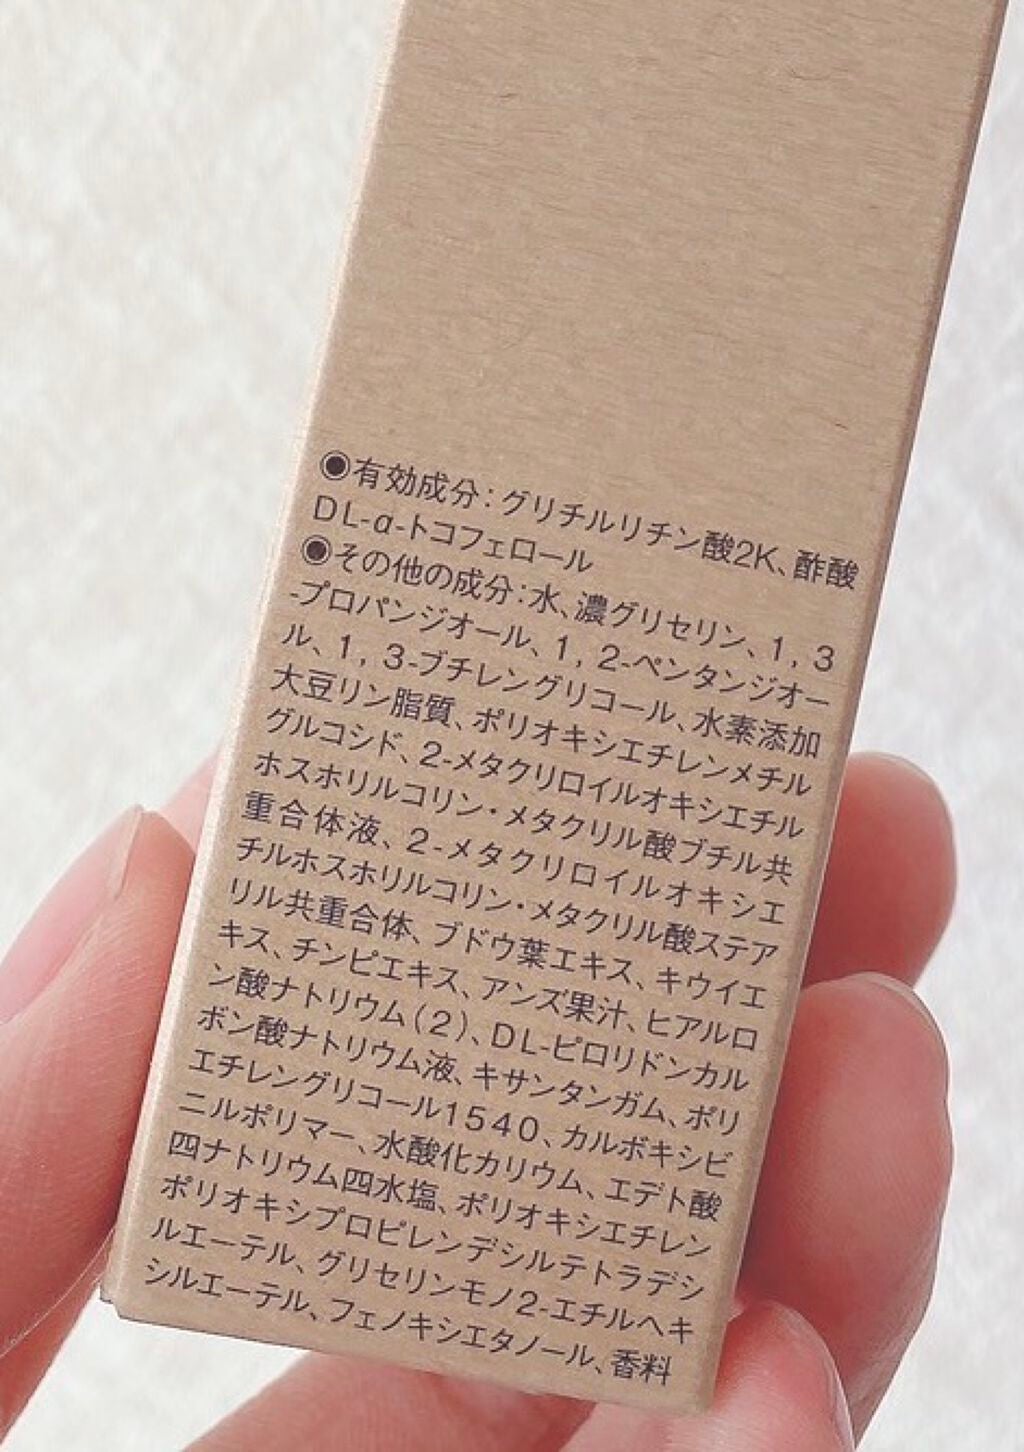 ◉有効成分：グリチルリチン酸2K、酢酸
DL-α-トコフェロール
◉その他の成分：水、濃グリセリン、1，3
-プロパンジオール、1，2-ペンタンジオー
ル、1，3-ブチレングリコール、水素添加
大豆リン脂質、ポリオキシエチレンメチル
グルコシド、2-メタクリロイルオキシエチル
ホスホリルコリン・メタクリル酸ブチル共
重合体液、2-メタクリロイルオキシエ
チルホスホリルコリン・メタクリル酸ステア
リル共重合体、ブドウ葉エキス、キウイエ
キス、チンピエキス、アンズ果汁、ヒアルロ
ン酸ナトリウム（2）、DL-ピロリドンカル
ボン酸ナトリウム液、キサンタンガム、ポリ
エチレングリコール1540、カルボキシビ
ニルポリマー、水酸化カリウム、エデト酸
四ナトリウム四水塩、ポリオキシエチレン
ポリオキシプロピレンデシルテトラデシ
ルエーテル、グリセリンモノ2-エチルヘキ
シルエーテル、フェノキシエタノール、香料